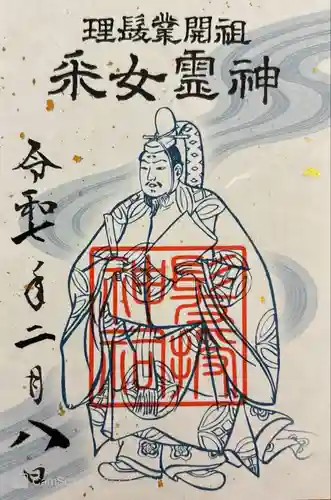 理髪業開祖
采女霊神
令和七年二月八日